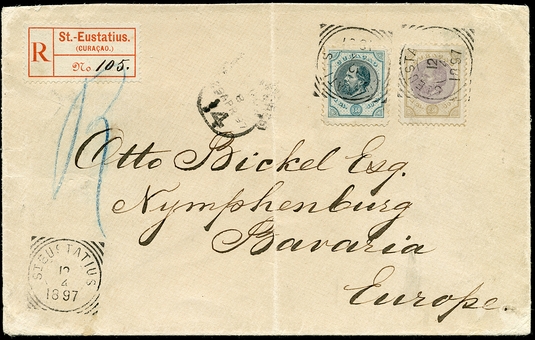 R
St.-Eustatius.
(CURAÇAO.)
No 105.
14
12
1897
Otto Bickel Esq.
Nymphenburg
Bavaria
Europe.
ST EUSTATIUS
12
4
1897